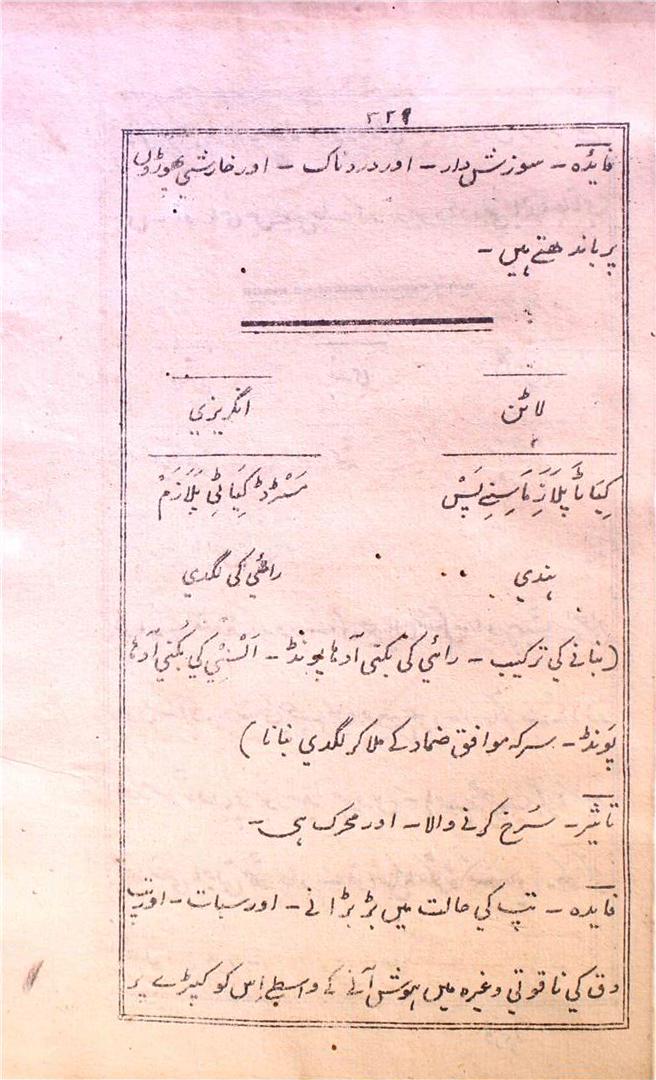 ۲۲۹
فایدہ - سوزش دار - اور دردناک - اور خارشی پھوڑوں
پر باندھتے ہیں -
لاٹن انگریزی
کِیَاٹَاپْلَازْمَاسِنِےپِسْ مَسْٹَرڈ کِیَاٹَپْلَازَمْ
ہندی رائی کی لگدی
(بنانے کی ترکیب - رائی کی بکنی آدھا پونڈ - اَلْسِی کی بُکنی آدھا
پَونڈ - سرکہ موافق ضماد کے ملا کر لگدی بنانا)
تاثیر - سُرخ کرنے والا - اور محرک ہی -
فایدہ - تپ کی حالت میں بڑبڑانے - اور سبات - اور تپ
دق کی ناقوتی وغیرہ میں ہوش آنے کے واسطے اِس کو کپڑے پر